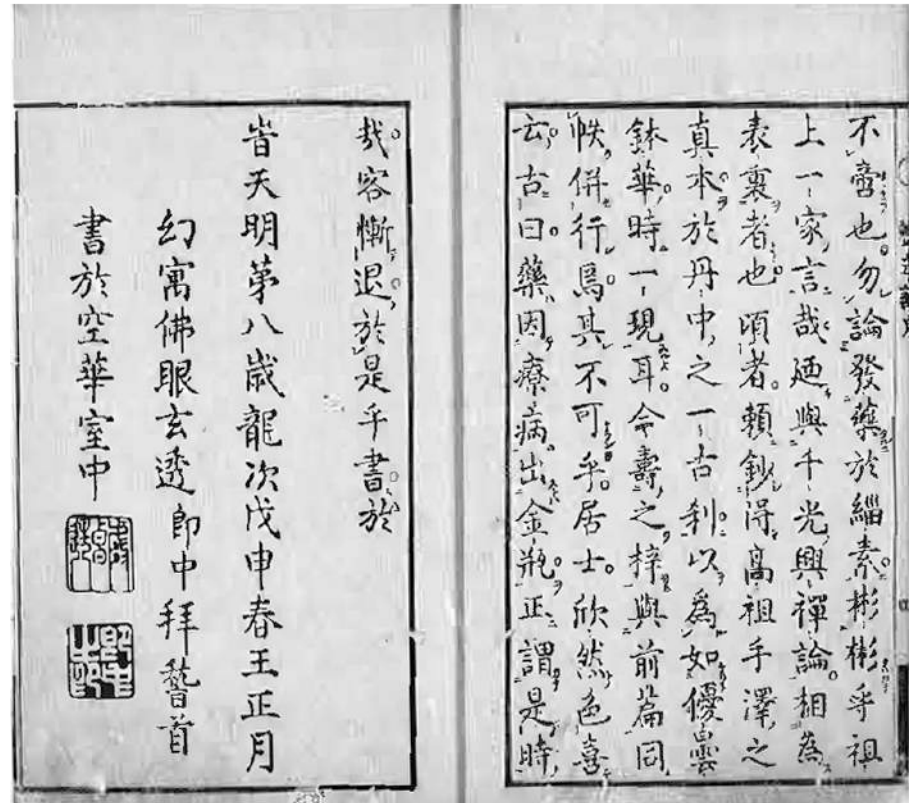 不啻也勿論發藥於緇素彬彬乎祖
上一家言哉廼與千光興禪論相為
表裏者也頃者賴鈔得高祖手澤之
真本於丹中之一古刹以為如優曇
鉢華時一現耳今壽之梓與前篇同
帙併行焉其不可乎居士欣然色喜
云古曰藥因療病出金瓶正謂是時
哉容慚退於是乎書於
旹天明第八歲龍次戊申春王正月
幻寓佛眼玄透即中拜𥡴首
書於空華室中